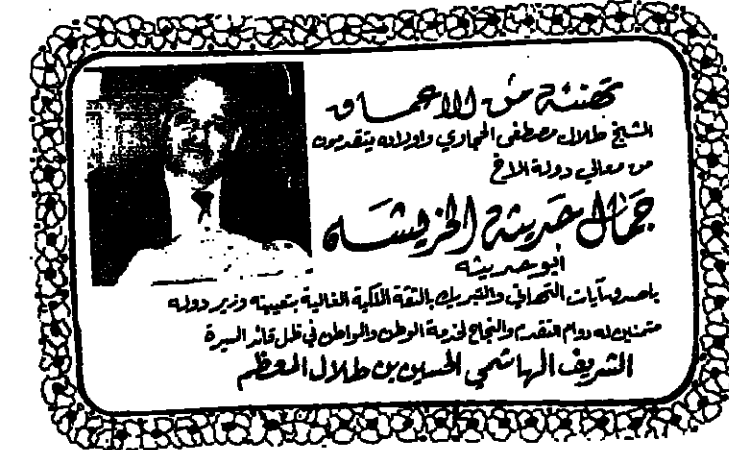 تهنئة من الاعماق
الشيخ طلال مصطفى الحجاوي واولاده يتقدمون
من معالي دولة الاخ
جمال حديثة الخريشه
ابو حديثه
باصدق آيات التهاني والتبريك بالثقة الملكية الغالية بتعيينه وزير دوله
متمنين له دوام التقدم والنجاح لخدمة الوطن والمواطن في ظل قائد المسيرة
الشريف الهاشمي الحسين بن طلال المعظم